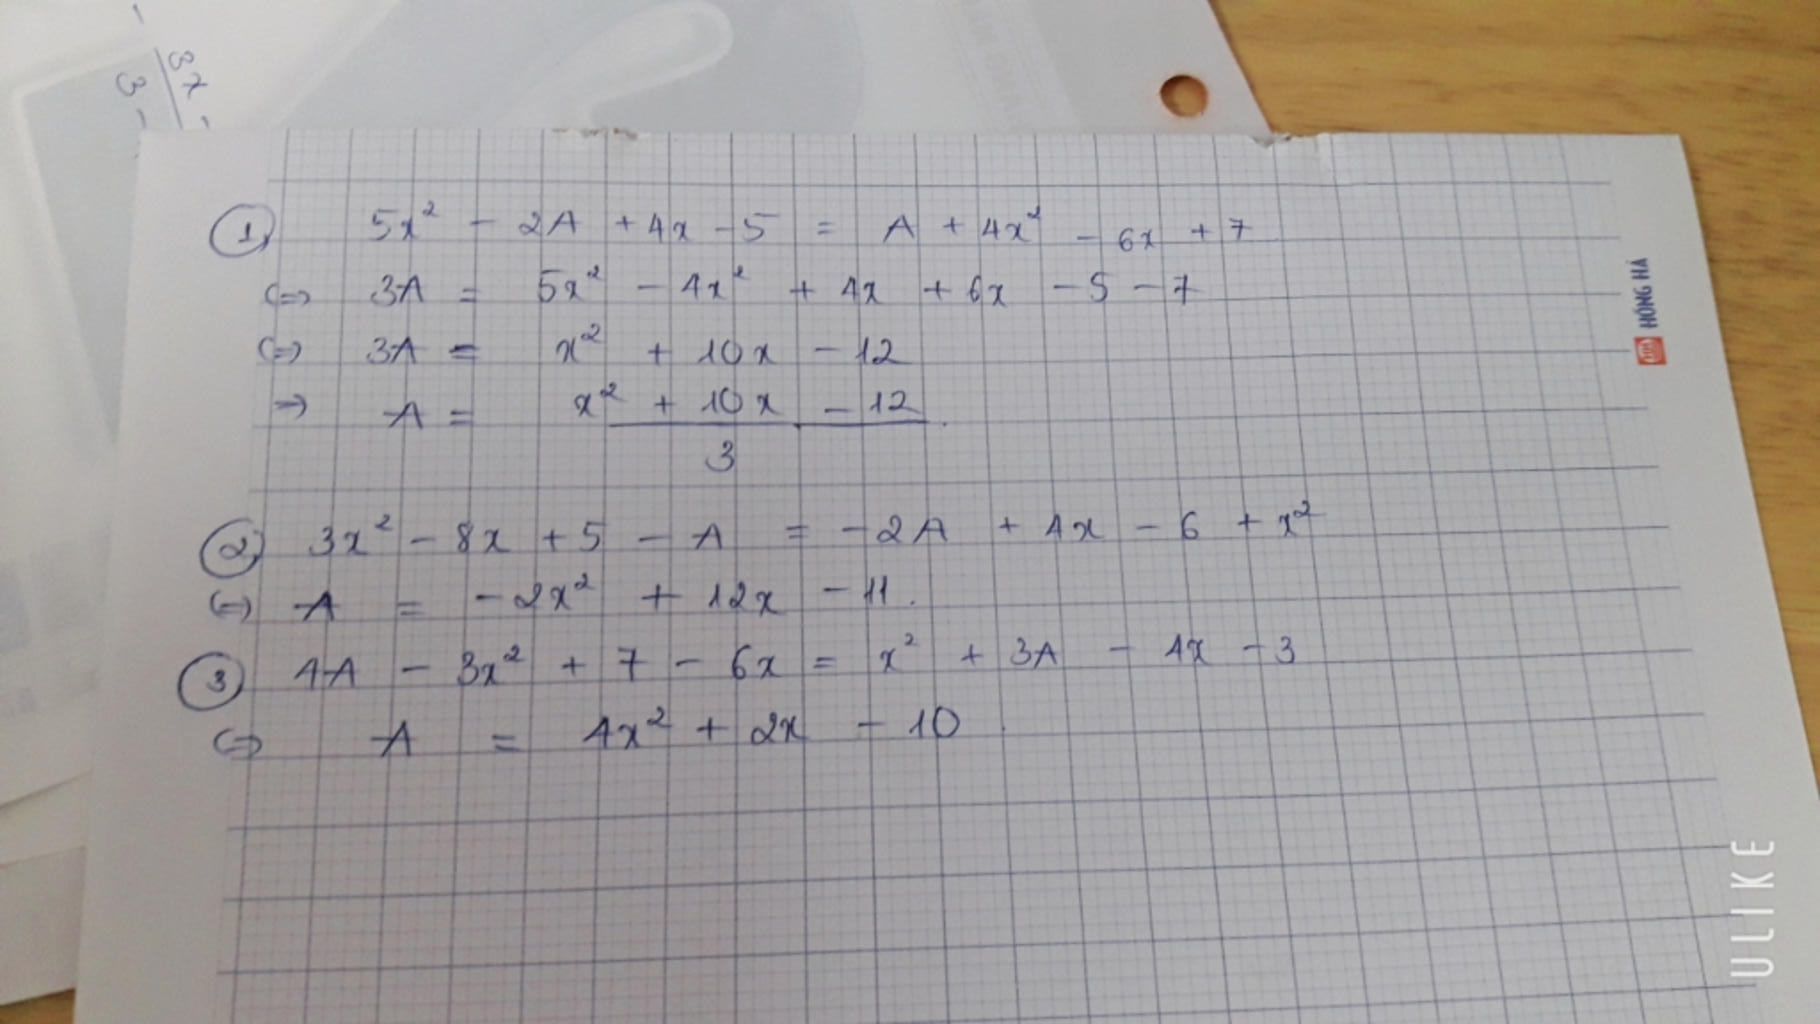 ① 5x² - 2A + 4x - 5 = A + 4x² - 6x + 7
<=> 3A = 5x² - 4x² + 4x + 6x - 5 - 7
<=> 3A = x² + 10x - 12
=> A = x² + 10x - 12
3
② 3x² - 8x + 5 - A = -2A + 4x - 6 + x²
<=> A = -2x² + 12x - 11.
③ 4A - 3x² + 7 - 6x = x² + 3A - 4x - 3
<=> A = 4x² + 2x - 10.
HỒNG HÀ
ULIKE